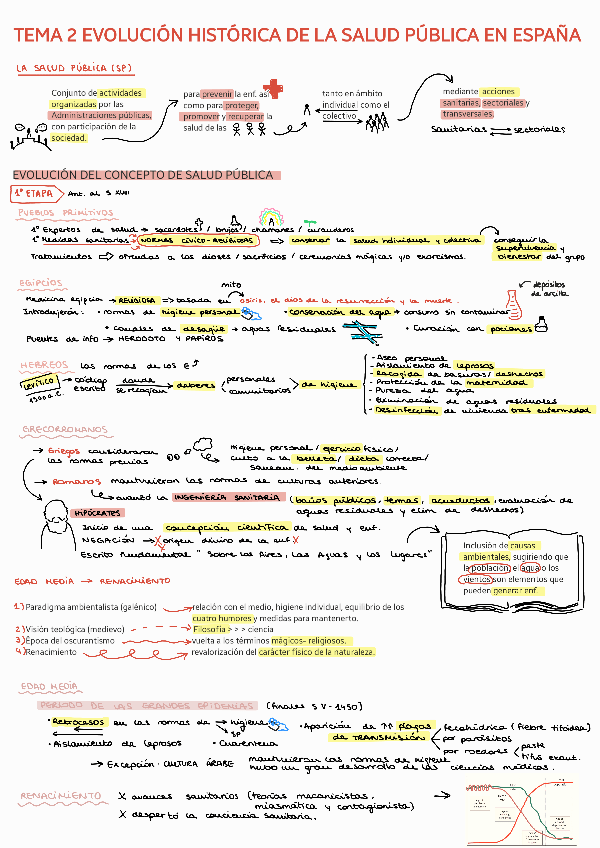 TEMA 2 EVOLUCIÓN HISTÓRICA DE LA SALUD PÚBLICA EN ESPAÑA
LA SALUD PÚBLICA (SP)
Conjunto de actividades
organizadas por las
Administraciones públicas,
con participación de la
sociedad.
para prevenir la enf. así
como para proteger,
promover y recuperar la
salud de las
tanto en ámbito
individual como el
colectivo
mediante acciones
sanitarias, sectoriales y
transversales.
sanitarias sectoriales
EVOLUCIÓN DEL CONCEPTO DE SALUD PÚBLICA
1º ETAPA Ant. al S XVIII
PUEBLOS PRIMITIVOS
1º Expertos de salud → sacerdotes / brujos / chamanes / curanderos
1º Medidas sanitarias → NORMAS CÍVICO-RELIGIOSAS ⇒ conservar la salud individual y colectiva
conseguir la
supervivencia y
bienestar del grupo
Tratamientos ⇒ ofrendas a los dioses / sacrificios / ceremonias mágicas y/o exorcismos.
EGIPCIOS
mito
Medicina egipcia → RELIGIOSA ⇒ basada en osiris, el dios de la resurrección y la muerte.
depósitos
de arcilla
Introdujeron: • normas de higiene personal • conservación del agua → consumo sin contaminar
• canales de desagüe → aguas residuales • Curación con pociones
Fuentes de info → HERODOTO Y PAPIROS
HEBREOS las normas de los E
LEVÍTICO
1500 a.C.
→ código
escrito
donde
se recogían
deberes
personales
comunitarios
de higiene
- Aseo personal
- Aislamiento de leprosos
- Recogida de basuras / deshechos
- Protección de la maternidad
- Pureza del agua
- Eliminación de aguas residuales
- Desinfección de vivienda tras enfermedad
GRECORROMANOS
→ Griegos consideraron
las normas previas
Higiene personal / ejercicio físico /
culto a la belleza / dieta correcta /
saneam. del medioambiente
→ Romanos mantuvieron las normas de culturas anteriores
→ avanzó la INGENIERÍA SANITARIA (baños públicos, termas, acueductos, evaluación de
aguas residuales y elim de deshechos)
HIPÓCRATES
Inicio de una concepción científica de salud y enf.
NEGACIÓN → origen divino de la enf
Escrito fundamental "Sobre los Aires, las Aguas y los lugares"
Inclusión de causas
ambientales, sugiriendo que
la población, el agua o los
vientos son elementos que
pueden generar enf.
EDAD MEDIA → RENACIMIENTO
1) Paradigma ambientalista (galénico) relación con el medio, higiene individual, equilibrio de los
cuatro humores y medidas para mantenerto.
2) Visión teológica (medievo) Filosofía > > > ciencia
3) Época del oscurantismo vuelta a los términos mágicos- religiosos.
4) Renacimiento revalorización del carácter físico de la naturaleza.
EDAD MEDIA
PERIODO DE LAS GRANDES EPIDEMIAS (finales S V - 1450)
• Retrocesos en las normas de → higiene
SP
• Aislamiento de leprosos • Cuarentena
• Aparición de plagas
de TRANSMISIÓN
fecohídrica (fiebre tifoidea)
por parásitos
por roedores
peste
tifus exant.
→ Excepción • CULTURA ÁRABE mantuvieron las normas de higiene
hubo un gran desarrollo de las ciencias médicas.
RENACIMIENTO X avances sanitarios (teorías mecanicistas,
miasmática y contagionista)
X despertó la conciencia sanitaria.